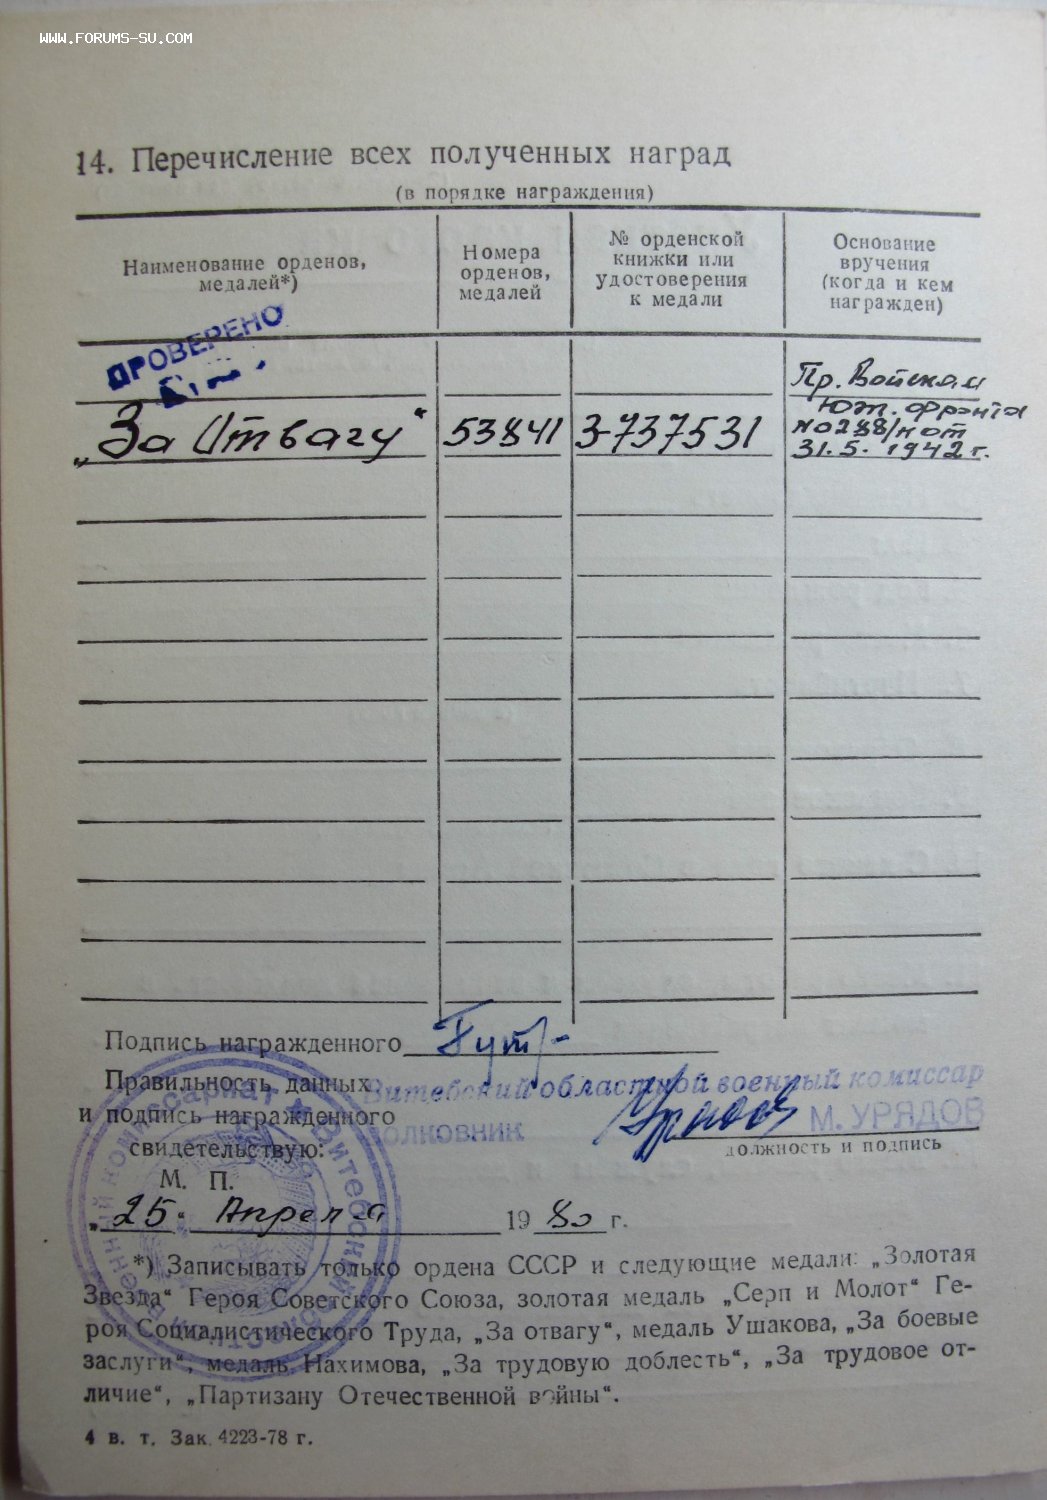 WWW.FORUMS-SU.COM
14. Перечисление всех полученных наград
(в порядке награждения)
Наименование орденов,
медалей*)
Номера
орденов,
медалей
№ орденской
книжки или
удостоверения
к медали
Основание
вручения
(когда и кем
награжден)
ПРОВЕРЕНО
„За Отвагу“
53841
3-737531
Пр. Войскам
Юж. фронта
№0288/н от
31.5.1942 г.
Подпись награжденного
Правильность данных
и подпись награжденного
свидетельствую:
Витебский областной военный комиссар
полковник
М. УРЯДОВ
должность и подпись
М. П.
„25“ Апреля 1980 г.
*) Записывать только ордена СССР и следующие медали: „Золотая
Звезда“ Героя Советского Союза, золотая медаль „Серп и Молот“ Ге-
роя Социалистического Труда, „За отвагу“, медаль Ушакова, „За боевые
заслуги“, медаль Нахимова, „За трудовую доблесть“, „За трудовое от-
личие“, „Партизану Отечественной войны“.
4 в. т. Зак. 4223-78 г.